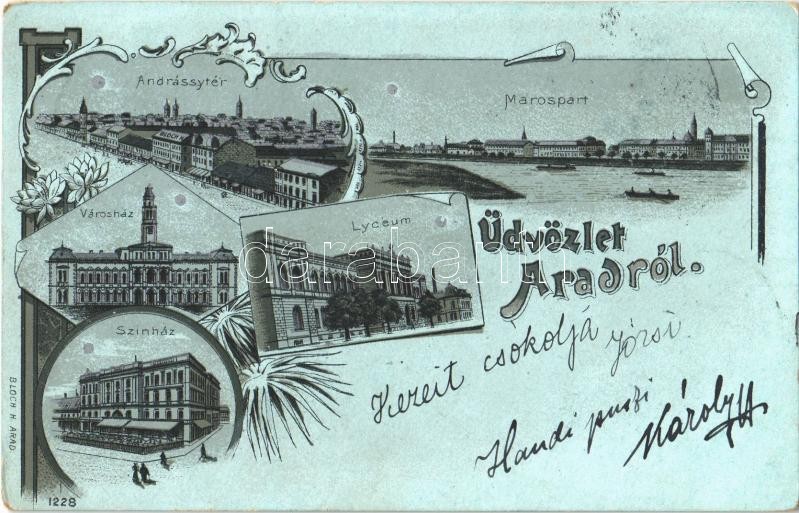 Andrássytér
BLOCH H.
Marospart
Városház
Lyceum
Üdvözlet
Aradról.
Szinház
Kezeit csókolja Józsi
Handi puszi
Károly
BLOCH H. ARAD
1228
darabanth